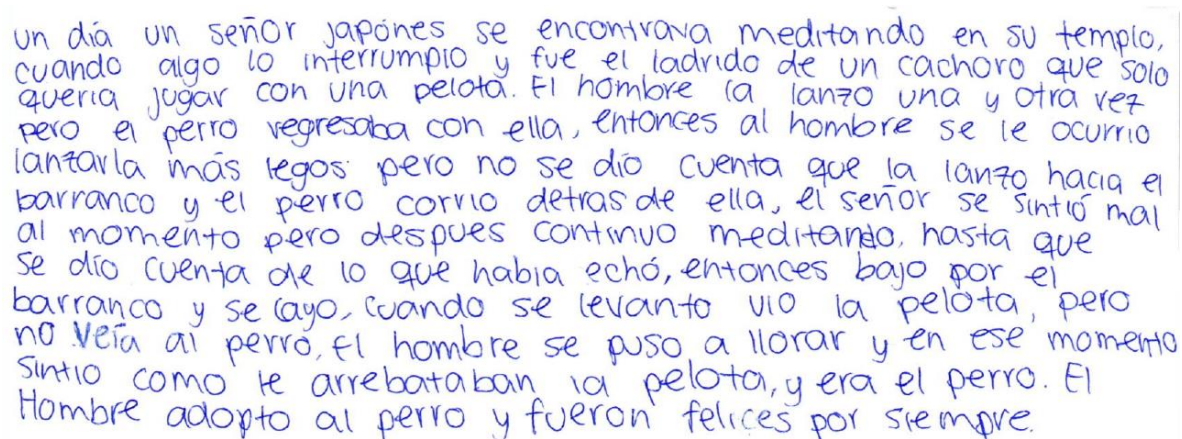 un día un señor japónes se encontrava meditando en su templo,
cuando algo lo interrumpio y fue el ladrido de un cachoro que solo
queria jugar con una pelota. El hombre la lanzo una y otra vez
pero el perro regresaba con ella, entonces al hombre se le ocurrio
lanzarla más legos pero no se dío cuenta que la lanzo hacia el
barranco y el perro corrio detras de ella, el señor se sintió mal
al momento pero despues continuo meditando, hasta que
se dío cuenta de lo que habia echó, entonces bajo por el
barranco y se cayo, cuando se levanto vio la pelota, pero
no veía al perro, El hombre se puso a llorar y en ese momento
sintio como le arrebataban la pelota, y era el perro. El
Hombre adopto al perro y fueron felices por siempre.